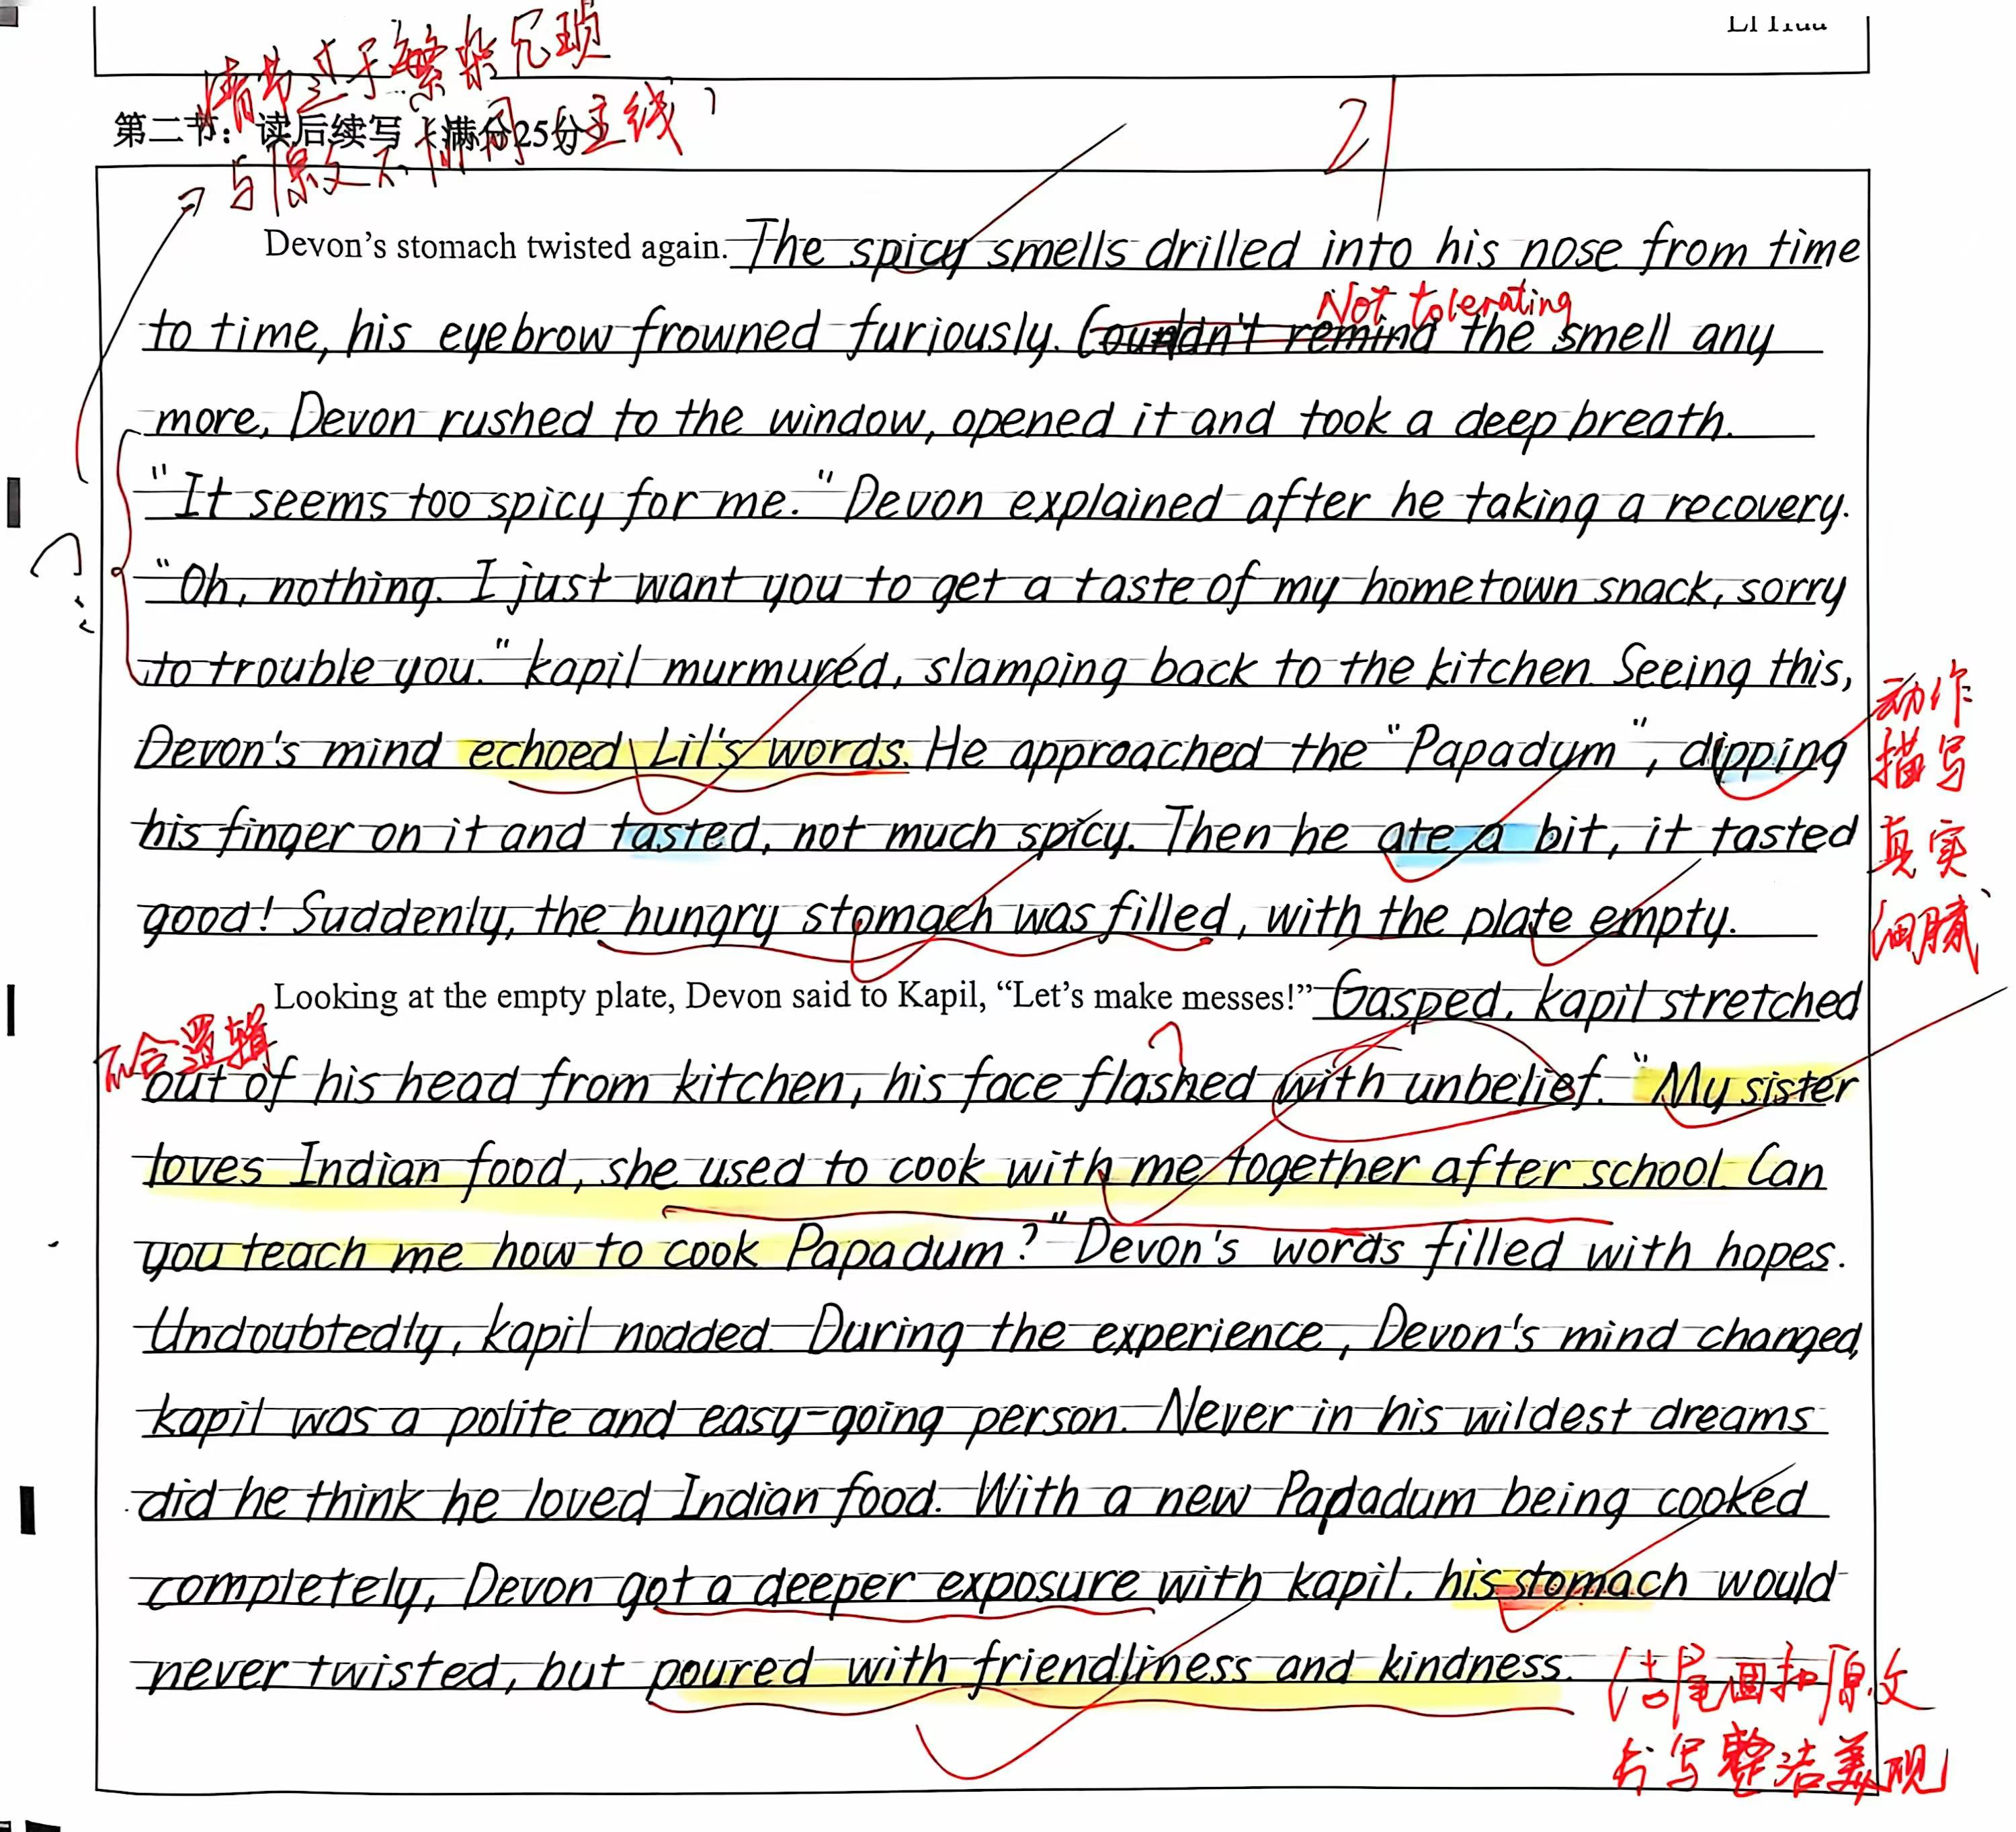 情节过于繁杂冗琐
第二节：读后续写（满分25分）
与原文不同 主线
21
Devon's stomach twisted again. The spicy smells drilled into his nose from time
Not tolerating
to time, his eyebrow frowned furiously. Couldn't remind the smell any
more, Devon rushed to the window, opened it and took a deep breath.
"It seems too spicy for me." Devon explained after he taking a recovery.
"Oh, nothing. I just want you to get a taste of my hometown snack, sorry
to trouble you." kapil murmured, slamping back to the kitchen. Seeing this,
Devon's mind echoed Lil's words. He approached the "Papadum", dipping
his finger on it and tasted, not much spicy. Then he ate a bit, it tasted
good! Suddenly, the hungry stomach was filled, with the plate empty.
动作
描写
真实
细腻
Looking at the empty plate, Devon said to Kapil, “Let's make messes!” Gasped, kapil stretched
不合逻辑
out of his head from kitchen, his face flashed with unbelief. "My sister
loves Indian food, she used to cook with me together after school. Can
you teach me how to cook Papadum?" Devon's words filled with hopes.
Undoubtedly, kapil nodded. During the experience, Devon's mind changed,
kapil was a polite and easy-going person. Never in his wildest dreams
did he think he loved Indian food. With a new Papadum being cooked
completely, Devon got a deeper exposure with kapil, his stomach would
never twisted, but poured with friendliness and kindness.
结尾回扣原文
书写整洁美观